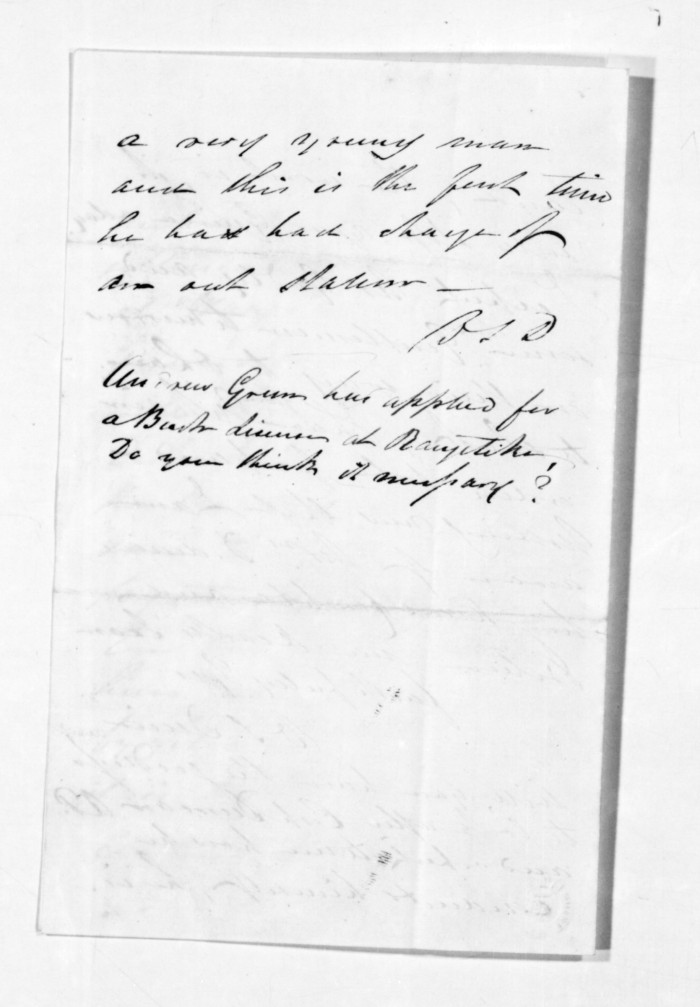 a very young man
and this is the first time
he has had charge of
an out station —
B S D
Andrew Green has applied for
a Bush License at Rangitikei
Do you think it necessary?